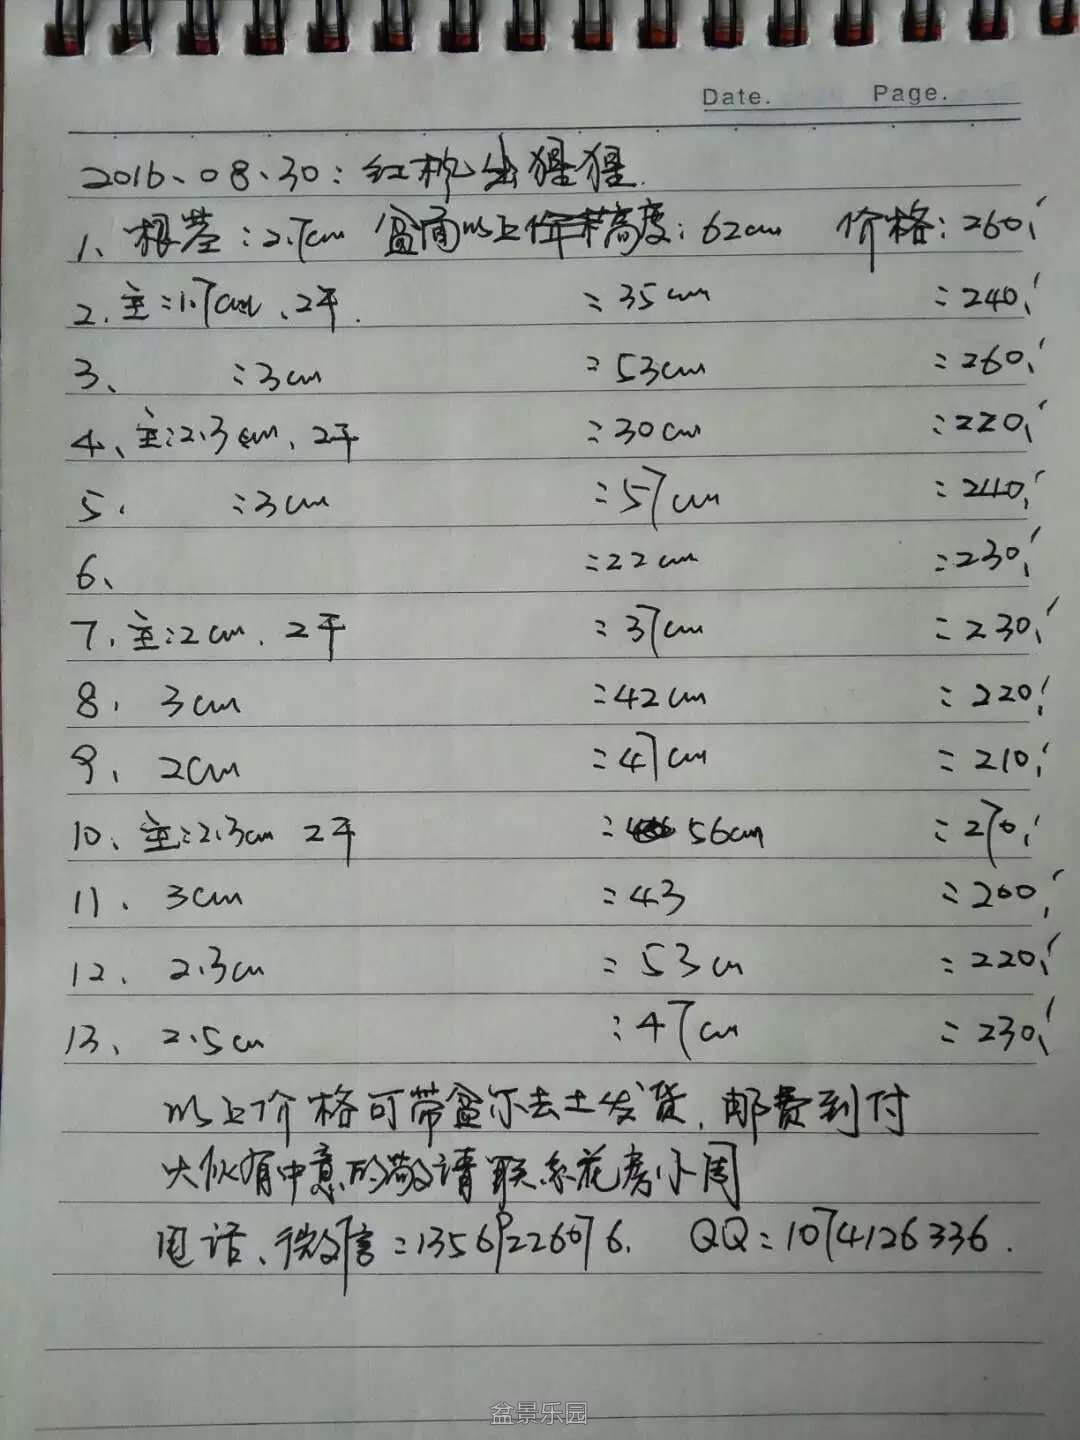 Date. Page.
2016、08、30:红枫出猩猩.
1、根茎:2.7cm 盆面以上高度:62cm 价格:260.
2.主:1.7cm、2干. :35cm :240.
3、 :3cm :53cm :260.
4、主:2.3cm、2干 :30cm :220.
5. :3cm :57cm :240.
6、 :22cm :230.
7.主:2cm.2干 :37cm :230.
8. 3cm :42cm :220.
9. 2cm :47cm :210.
10、主:2.3cm 2干 :56cm :270.
11. 3cm :43 :200.
12. 2.3cm :53cm :220.
13、 2.5cm :47cm :230.
以上价格可带盆尔去土发货.邮费到付
大伙有中意的敬请联系花房小周
电话、微信:13569226076. QQ:1074126336.
盆景乐园